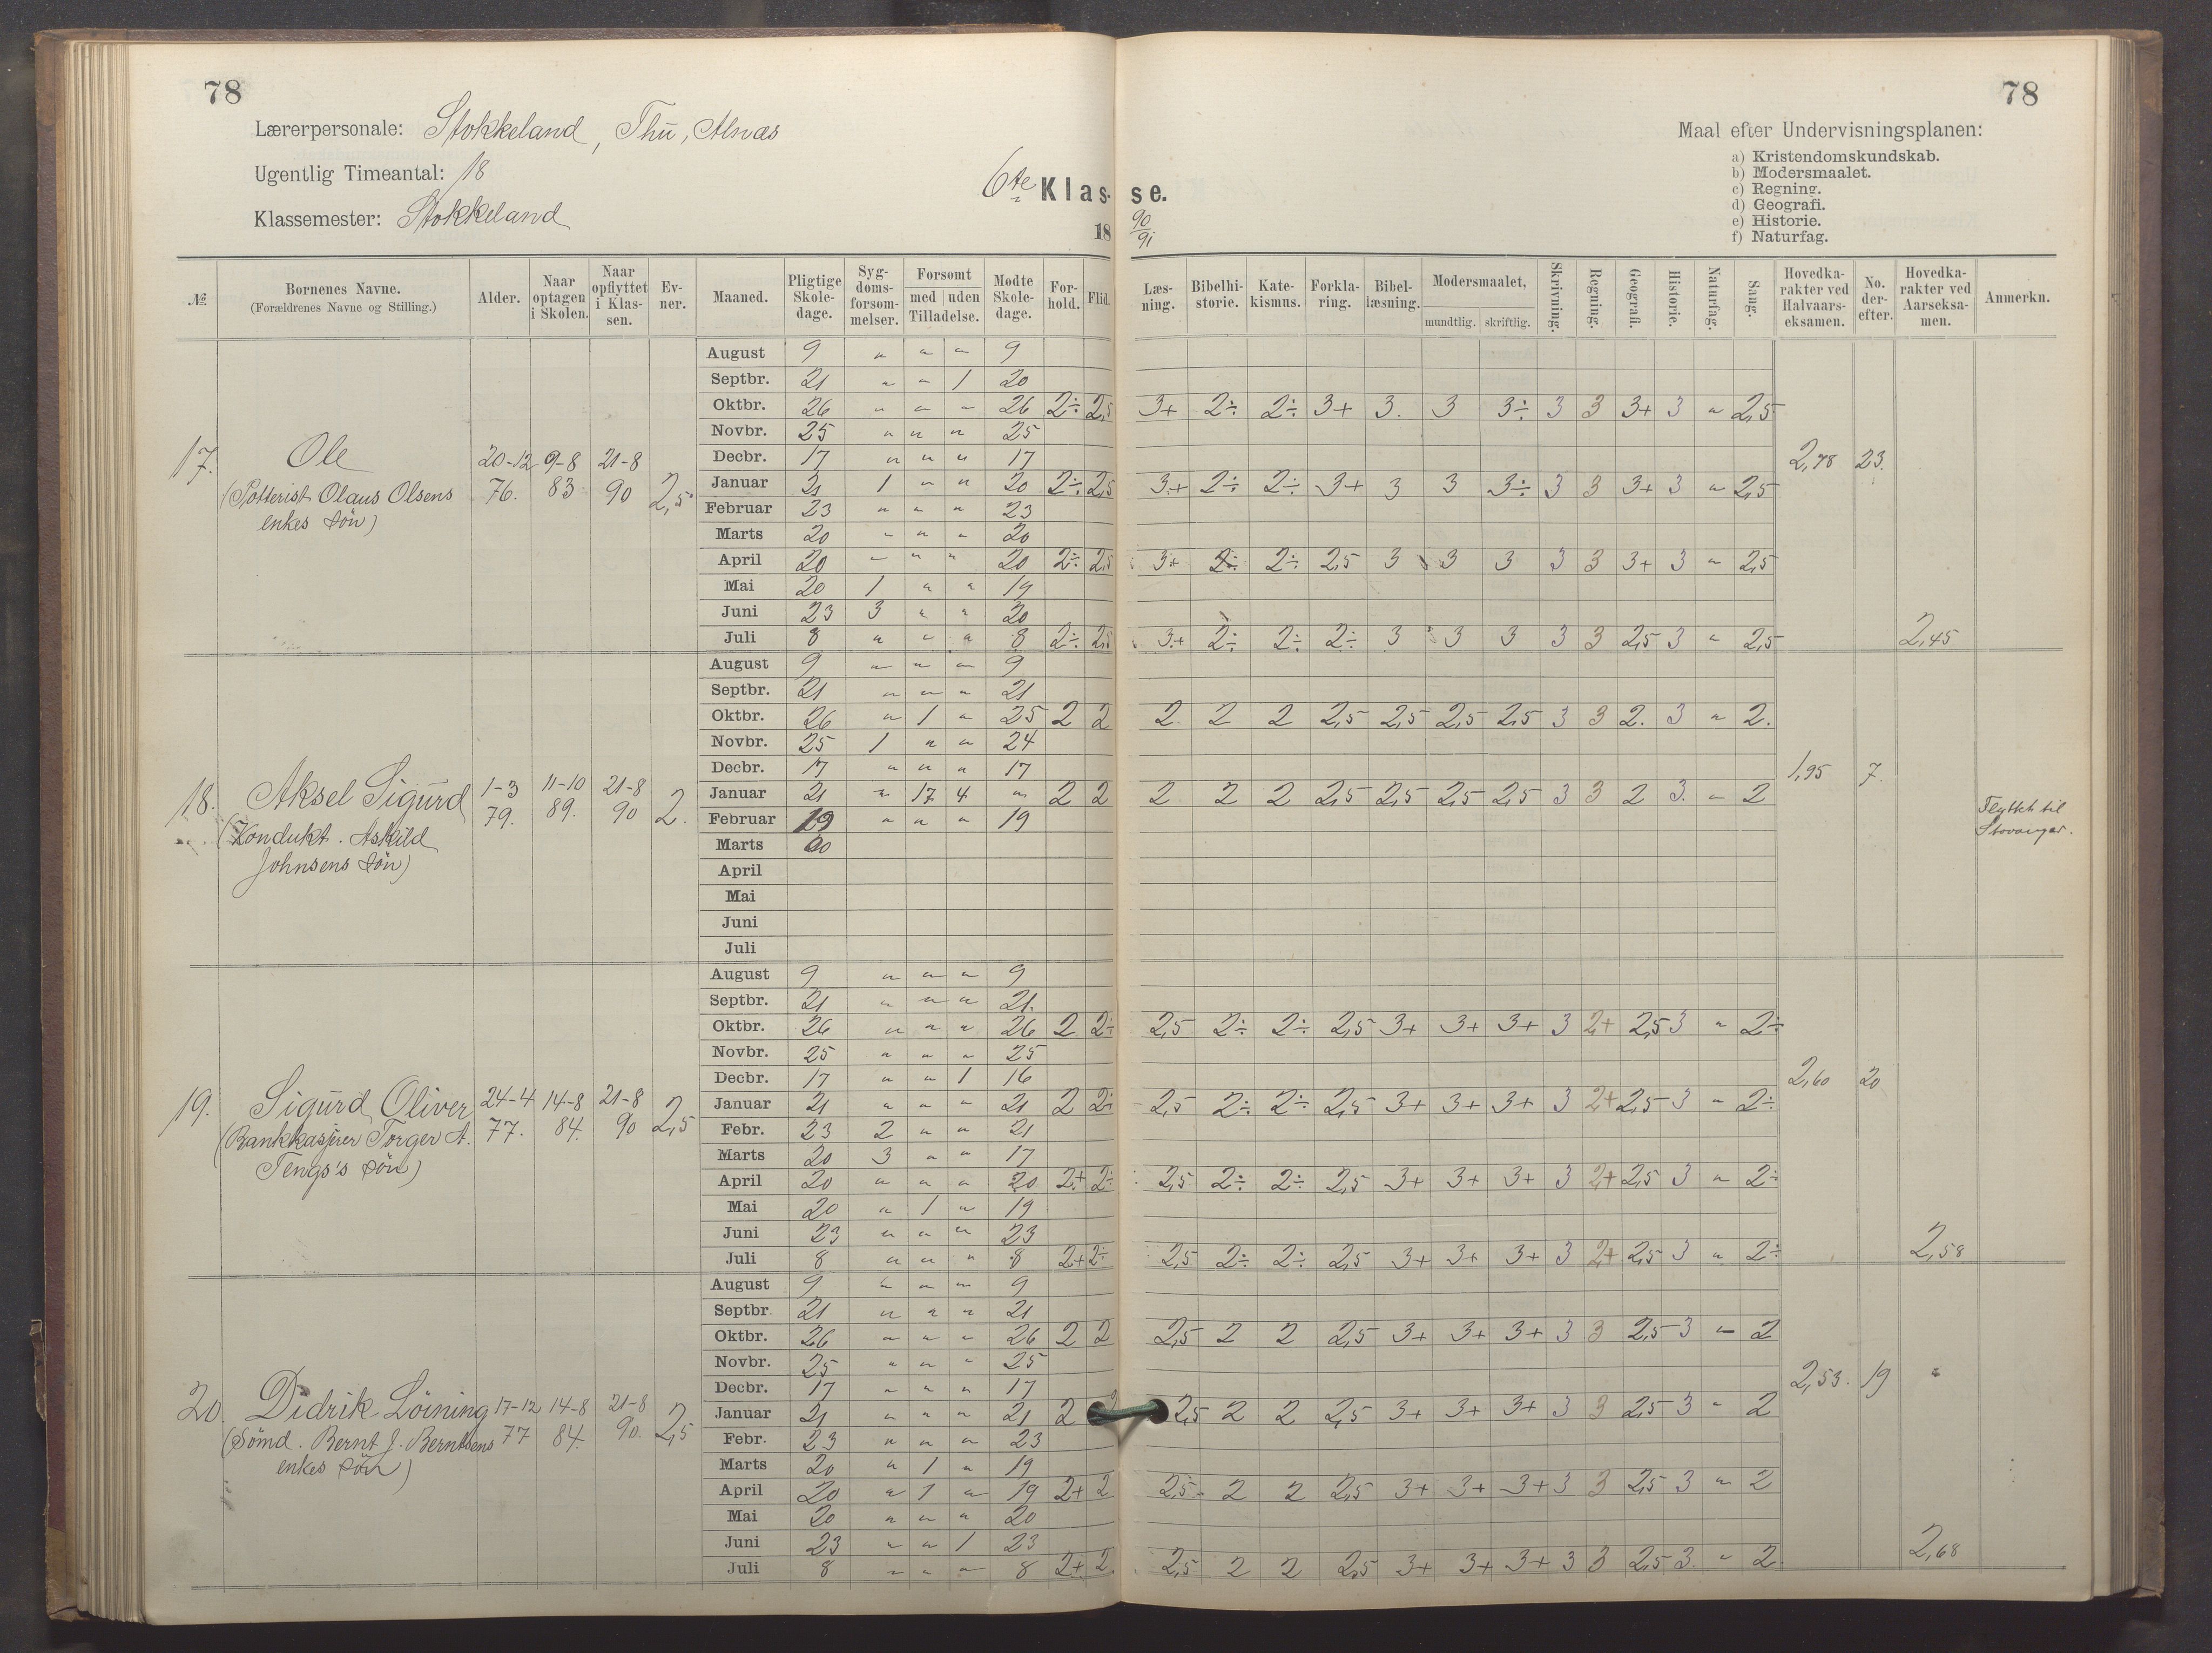 78
78
Lærerpersonale: Stokkeland, Thu, Alnæs
Maal efter Undervisningsplanen:
a) Kristendomskundskab.
b) Modersmaalet.
c) Regning.
d) Geografi.
e) Historie.
f) Naturfag.
Ugentlig Timeantal: 18
6te Klasse.
Klassemester: Stokkeland
1890/91
№ Børnenes Navne. (Forældrenes Navne og Stilling.) Alder. Naar optagen i Skolen. Naar opflyttet i Klassen. Evner. Maaned. Pligtige Skoledage. Sygdomsforsømmelser. Forsømt med uden Tilladelse. Mødte Skoledage. Forhold. Flid. Læsning. Bibelhistorie. Katekismus. Forklaring. Bibellæsning. Modersmaalet, mundtlig. skriftlig. Skrivning. Regning. Geografi. Historie. Naturfag. Sang. Hovedkarakter ved Halvaarseksamen. No. derefter. Hovedkarakter ved Aarseksamen. Anmerkn.
17. Ole (Potterist Olaus Olsens enkes søn) 20-12 76. 9-8 83 21-8 90 2,5
August 9 " " " 9
Septbr. 21 " " 1 20
Oktbr. 26 " " " 26 2÷ 2,5 3+ 2÷ 2÷ 3+ 3. 3 3÷ 3 3 3+ 3 " 2,5
Novbr. 25 " " " 25
Decbr. 17 " " " 17 2,78 23.
Januar 21 1 " " 20 2÷ 2,5 3+ 2÷ 2÷ 3+ 3 3 3÷ 3 3 3+ 3 " 2,5
Februar 23 " " " 23
Marts 20 " " " 20
April 20 " " " 20 2÷ 2,5 3+ 2÷ 2÷ 2,5 3 3 3 3 3 3+ 3 " 2,5
Mai 20 1 " " 19
Juni 23 3 " " 20
Juli 8 " " " 8 2÷ 2,5 3+ 2÷ 2÷ 2÷ 3 3 3 3 3 2,5 3 " 2,5 2,45
18. Aksel Sigurd (Kondukt. Askild Johnsens søn) 1-3 79. 11-10 89. 21-8 90 2.
August 9 " " " 9
Septbr. 21 " " " 21
Oktbr. 26 " 1 " 25 2 2 2 2 2 2,5 2,5 2,5 2,5 3 3 2. 3 " 2.
Novbr. 25 1 " " 24
Decbr. 17 " " " 17 1,95 7.
Januar 21 " 17 4 " 2 2 2 2 2 2,5 2,5 2,5 2,5 3 3 2 3. " 2
Februar 19 " " " 19 Flyttet til Stavanger.
Marts 20
April
Mai
Juni
Juli
19. Sigurd Oliver (Bankkasjerer Torger A. Tengs's søn) 24-4 77. 14-8 84. 21-8 90 2,5
August 9 " " " 9
Septbr. 21 " " " 21.
Oktbr. 26 " " " 26 2 2÷ 2,5 2÷ 2÷ 2,5 3+ 3+ 3+ 3 2+ 2,5 3 " 2÷
Novbr. 25 " " " 25
Decbr. 17 " " 1 16 2,60 20
Januar 21 " " " 21 2 2÷ 2,5 2÷ 2÷ 2,5 3+ 3+ 3+ 3 2+ 2,5 3 " 2÷
Febr. 23 2 " " 21
Marts 20 3 " " 17
April 20 " " " 20 2+ 2÷ 2,5 2÷ 2÷ 2,5 3+ 3+ 3+ 3 2+ 2,5 3 " 2÷
Mai 20 " 1 " 19
Juni 23 " " " 23
Juli 8 " " " 8 2+ 2÷ 2,5 2÷ 2÷ 2,5 3+ 3+ 3+ 3 2+ 2,5 3 " 2÷ 2,58
20. Didrik Löining (Sömd. Bernt J. Berntsens enkes søn) 17-12 77 14-8 84. 21-8 90. 2,5
August 9 " " " 9
Septbr 21 " " " 21
Oktbr. 26 " " " 26 2 2 2,5 2 2 2,5 3+ 3+ 3+ 3 3 2,5 3 " 2
Novbr. 25 " " " 25
Decbr. 17 " " " 17 2,53. 19 "
Januar 21 " " " 21 2 2 2,5 2 2 2,5 3+ 3+ 3+ 3 3 2,5 3 " 2
Febr. 23 " " " 23
Marts 20 " 1 " 19
April 20 " 1 " 19 2+ 2 2,5 2 2 2,5 3+ 3+ 3+ 3 3 2,5 3 " 2
Mai 20 " " " 20
Juni 23 " " 1 23
Juli 8 " " " 8 2+ 2. 2,5 2 2 2,5 3+ 3+ 3+ 3 3 2,5 3. " 2 2,68